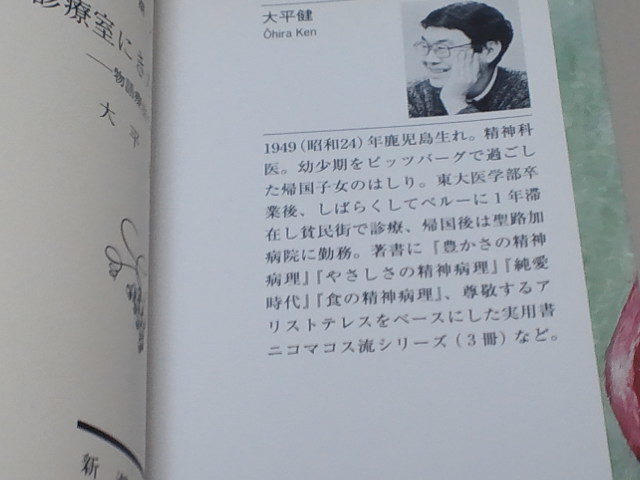 大平健
Ōhira Ken
1949（昭和24）年鹿児島生れ。精神科
医。幼少期をピッツバーグで過ごし
た帰国子女のはしり。東大医学部卒
業後、しばらくしてペルーに1年滞
在し貧民街で診療、帰国後は聖路加
病院に勤務。著書に『豊かさの精神
病理』『やさしさの精神病理』『純愛
時代』『食の精神病理』、尊敬するア
リストテレスをベースにした実用書
ニコマコス流シリーズ（3冊）など。
診療室にき
――物語
大平
新